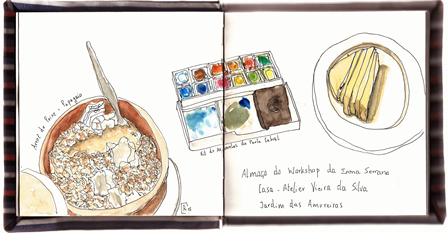 Arroz de Peixe - Papagaio
Kit de Aguarelas da Paula Cabral
Almoço do Workshop da Inma Serrano
Casa-Atelier Vieira da Silva
Jardim das Amoreiras